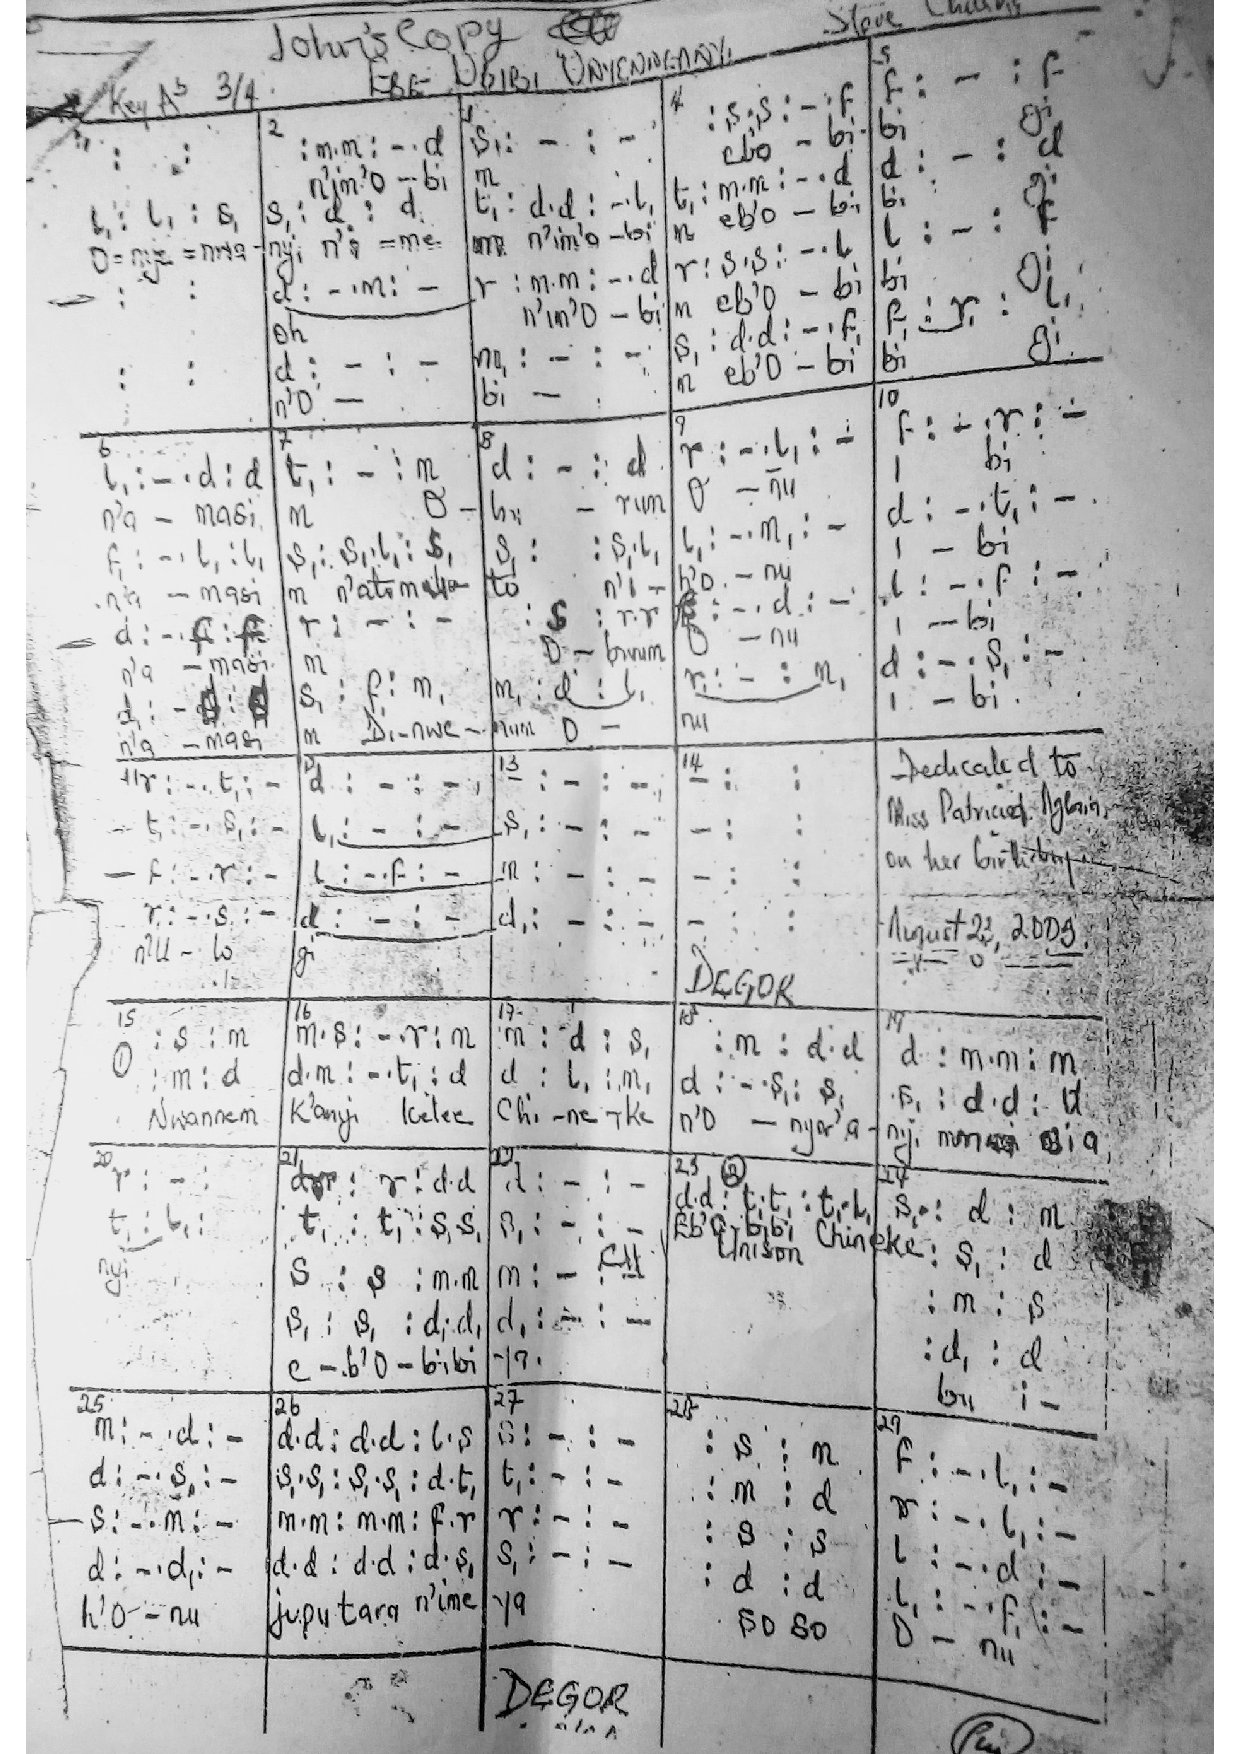 John's Copy
Key Ab 3/4.
2 4 5
: m.m : -.d s₁ : - : - : s.s : -.f f : - : f
n'im'O - bi m ebo - bi bi gi
t₁ : d.d : -.l₁ t₁ : m.m : -.d d : - : d
l₁ : l₁ : s₁ s₁ : d : d
O = nye = nwa - nyi n'a = me n'im'a - bi m eb'O - bi bi gi
: : d : -.m : - r : m.m : -.d r : s.s : -.l l : - : f
Oh n'im'O - bi m eb'O - bi bi gi
: : d : - : - m₁ : - : - s₁ : d.d : -.f₁ f₁ : r₁ : l₁
n'O - bi - m eb'O - bi bi gi.
6 7 8 9 10
l₁ : -.d : d t₁ : - : m d : - : d r : -.l₁ : - f : -.r : -
n'a - masi m O - bi - rum O - nu i bi
f₁ : -.l₁ : l₁ s₁ : s₁.l₁ : s₁ s₁ : : s₁.l₁ l₁ : -.m₁ : - d : -.t₁ : -
n'a - masi m to n'i - h'O - nu i - bi
d : -.f : f r : - : - : s : r.r : -.d : - l : -.f : -
n'a - masi m O - birum O - nu i - bi
s₁ : f₁ : m₁ m₁ : d : l₁ r₁ : - : m₁ d : -.s₁ : -
n'a - masi m Di - nwe - num O - nu i - bi
11 12 13 14
r : -.t₁ : - d : - : - - : - : - - : : Dedicated to
t₁ : -.s₁ : - l₁ : - : - s₁ : - : - - : : Miss Patricia
f : -.r : - l : -.f : - m : - : - - : : on her birthday
r : -.s : - d : - : - d₁ : - : - - : : August 23, 2003.
n'U - lo gi
DEGOR
15 16 17 18 19
① : s : m m.s : -.r : m m : d : s₁ : m : d.d d : m.m : m
: m : d d.m : -.t₁ : d d : l₁ : m₁ d : -.s₁ : s₁ s₁ : d.d : d
Nwannem K'anyi kelee Chi - ne - ke n'O - nyer'a - nyi
20 21 22 23 ② 24
r : - : : r : d.d d : - : - d.d : t₁.t₁ : t₁.l₁ s₁ : d : m
t₁ : l₁ : t₁ : t₁ : s₁.s₁ s₁ : - : - Eb'O - bibi Chineke : s₁ : d
nyi s : s : m.m m : - : - Unison : m : s
s₁ : s₁ : d₁.d₁ d₁ : - : - : d₁ : d
e - b'O - bibi ya. bu i -
25 26 27 28 29
m : -.d : - d.d : d.d : l.s s : - : - : s : m f : -.l₁ : -
d : -.s₁ : - s₁.s₁ : s₁.s₁ : d.t₁ t₁ : - : - : m : d r : -.l₁ : -
s : -.m : - m.m : m.m : f.r r : - : - : s : s l : -.d : -
d : -.d₁ : - d.d : d.d : d.s₁ s₁ : - : - : d : d l₁ : -.f₁ : -
h'O - nu juputara n'ime ya so so O - nu
DEGOR